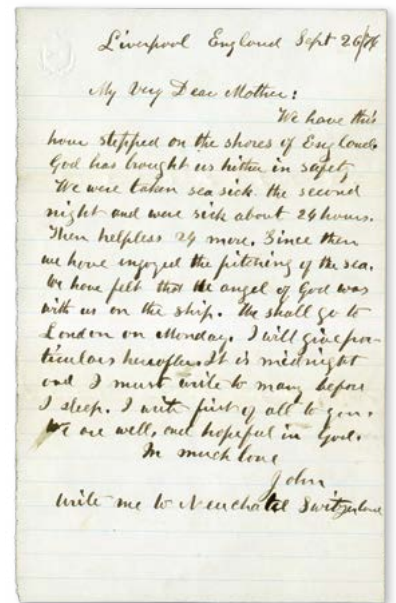 Liverpool England Sept 26/74
My Very Dear Mother:
We have this
hour stepped on the shores of England.
God has brought us hither in safety
We were taken sea sick the second
night and were sick about 24 hours.
Then helpless 24 more. Since then
we have injoyed the pitching of the sea.
We have felt that the angel of God was
with us on the ship. We shall go to
London on Monday. I will give par-
ticulars hereafter. It is midnight
and I must write to many before
I sleep. I writ first of all to you.
We are well, and hopeful in God.
In much love
John
Write me to Neuchatel Switzerland